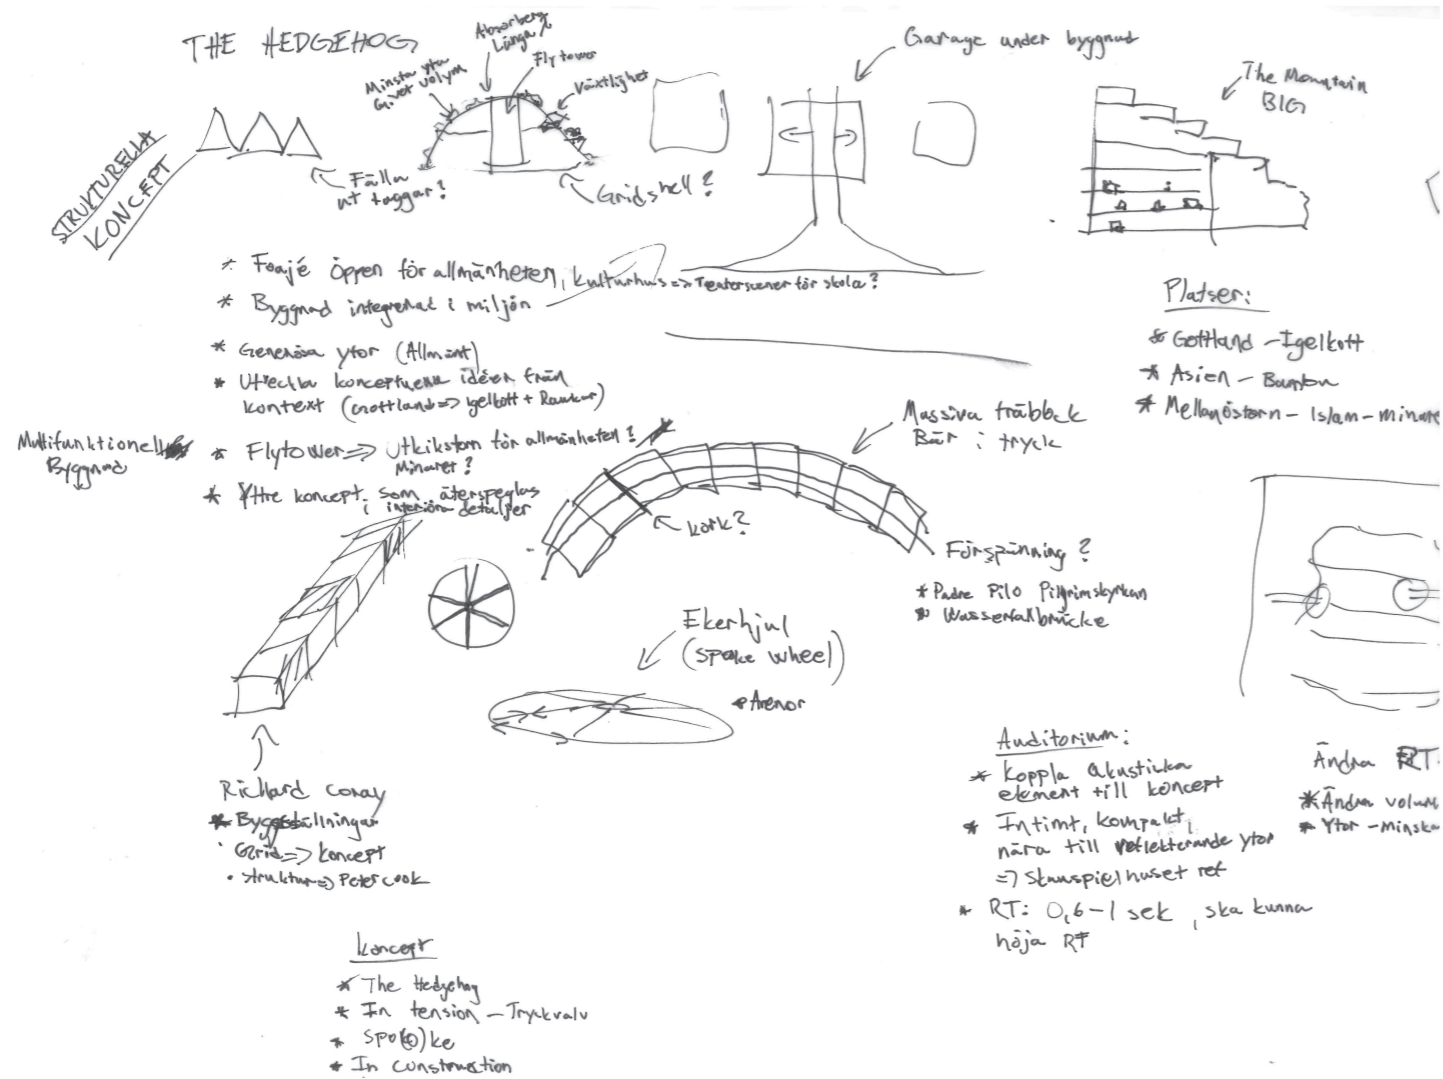 THE HEDGEHOG
STRUKTURELLA
KONCEPT
Fälla
ut taggar?
Minsta yta
Givet volym
Absorbera
Långa λ
Flytower
Växtlighet
Gridshell?
Garage under byggnad
The Mountain
BIG
* Foajé öppen för allmänheten, kulturhus => Teaterscener för skola?
* Byggnad integrerad i miljön
* Generösa ytor (Allmänt)
* Utveckla konceptuella idéer från
kontext (Gottland => igelkott + Raukar)
Multifunktionell
Byggnad
* Flytower => Utkikstorn för allmänheten?
Minaret?
* Yttre koncept som återspeglas
i interiöra detaljer
Platser:
* Gottland - Igelkott
* Asien - Bambu
* Mellanöstern - Islam - minare
Massiva träblock
Bär i tryck
kork?
Förspänning?
* Padre Pilo Pilgrimskyrkan
* Wasserfallbrücke
Ekerhjul
(spoke wheel)
* Arenor
Richard Coray
* Byggställningar
· Grid => koncept
· struktur => Peter cook
Auditorium:
* Koppla akustiska
element till koncept
* Intimt, kompakt,
nära till reflekterande ytor
=> Skauspielhuset ref
* RT: 0,6-1 sek, ska kunna
höja RT
Ändra RT
* Ändra volum
* Ytor - minska
koncept
* The Hedgehog
* In tension - Tryckvalv
* Spo(o)ke
* In construction